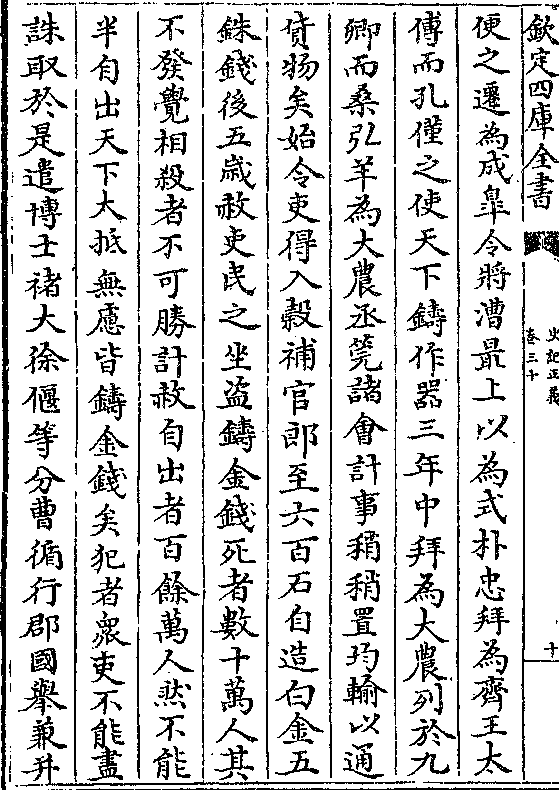 欽定四庫全書
史記正義
卷三十
十
便之遷為成臯令將漕最上以為式朴忠拜為齊王太
傅而孔僅之使天下鑄作器三年中拜為大農列於九
卿而桑弘羊為大農丞筦諸會計事稍稍置均輸以通
貨物矣始令吏得入穀補官郎至六百石自造白金五
銖錢後五歳赦吏民之坐盗鑄金錢死者數十萬人其
不發覺相殺者不可勝計赦自出者百餘萬人然不能
半自出天下大抵無慮皆鑄金錢矣犯者衆吏不能盡
誅取於是遣博士禇大徐偃等分曹循行郡國舉兼并